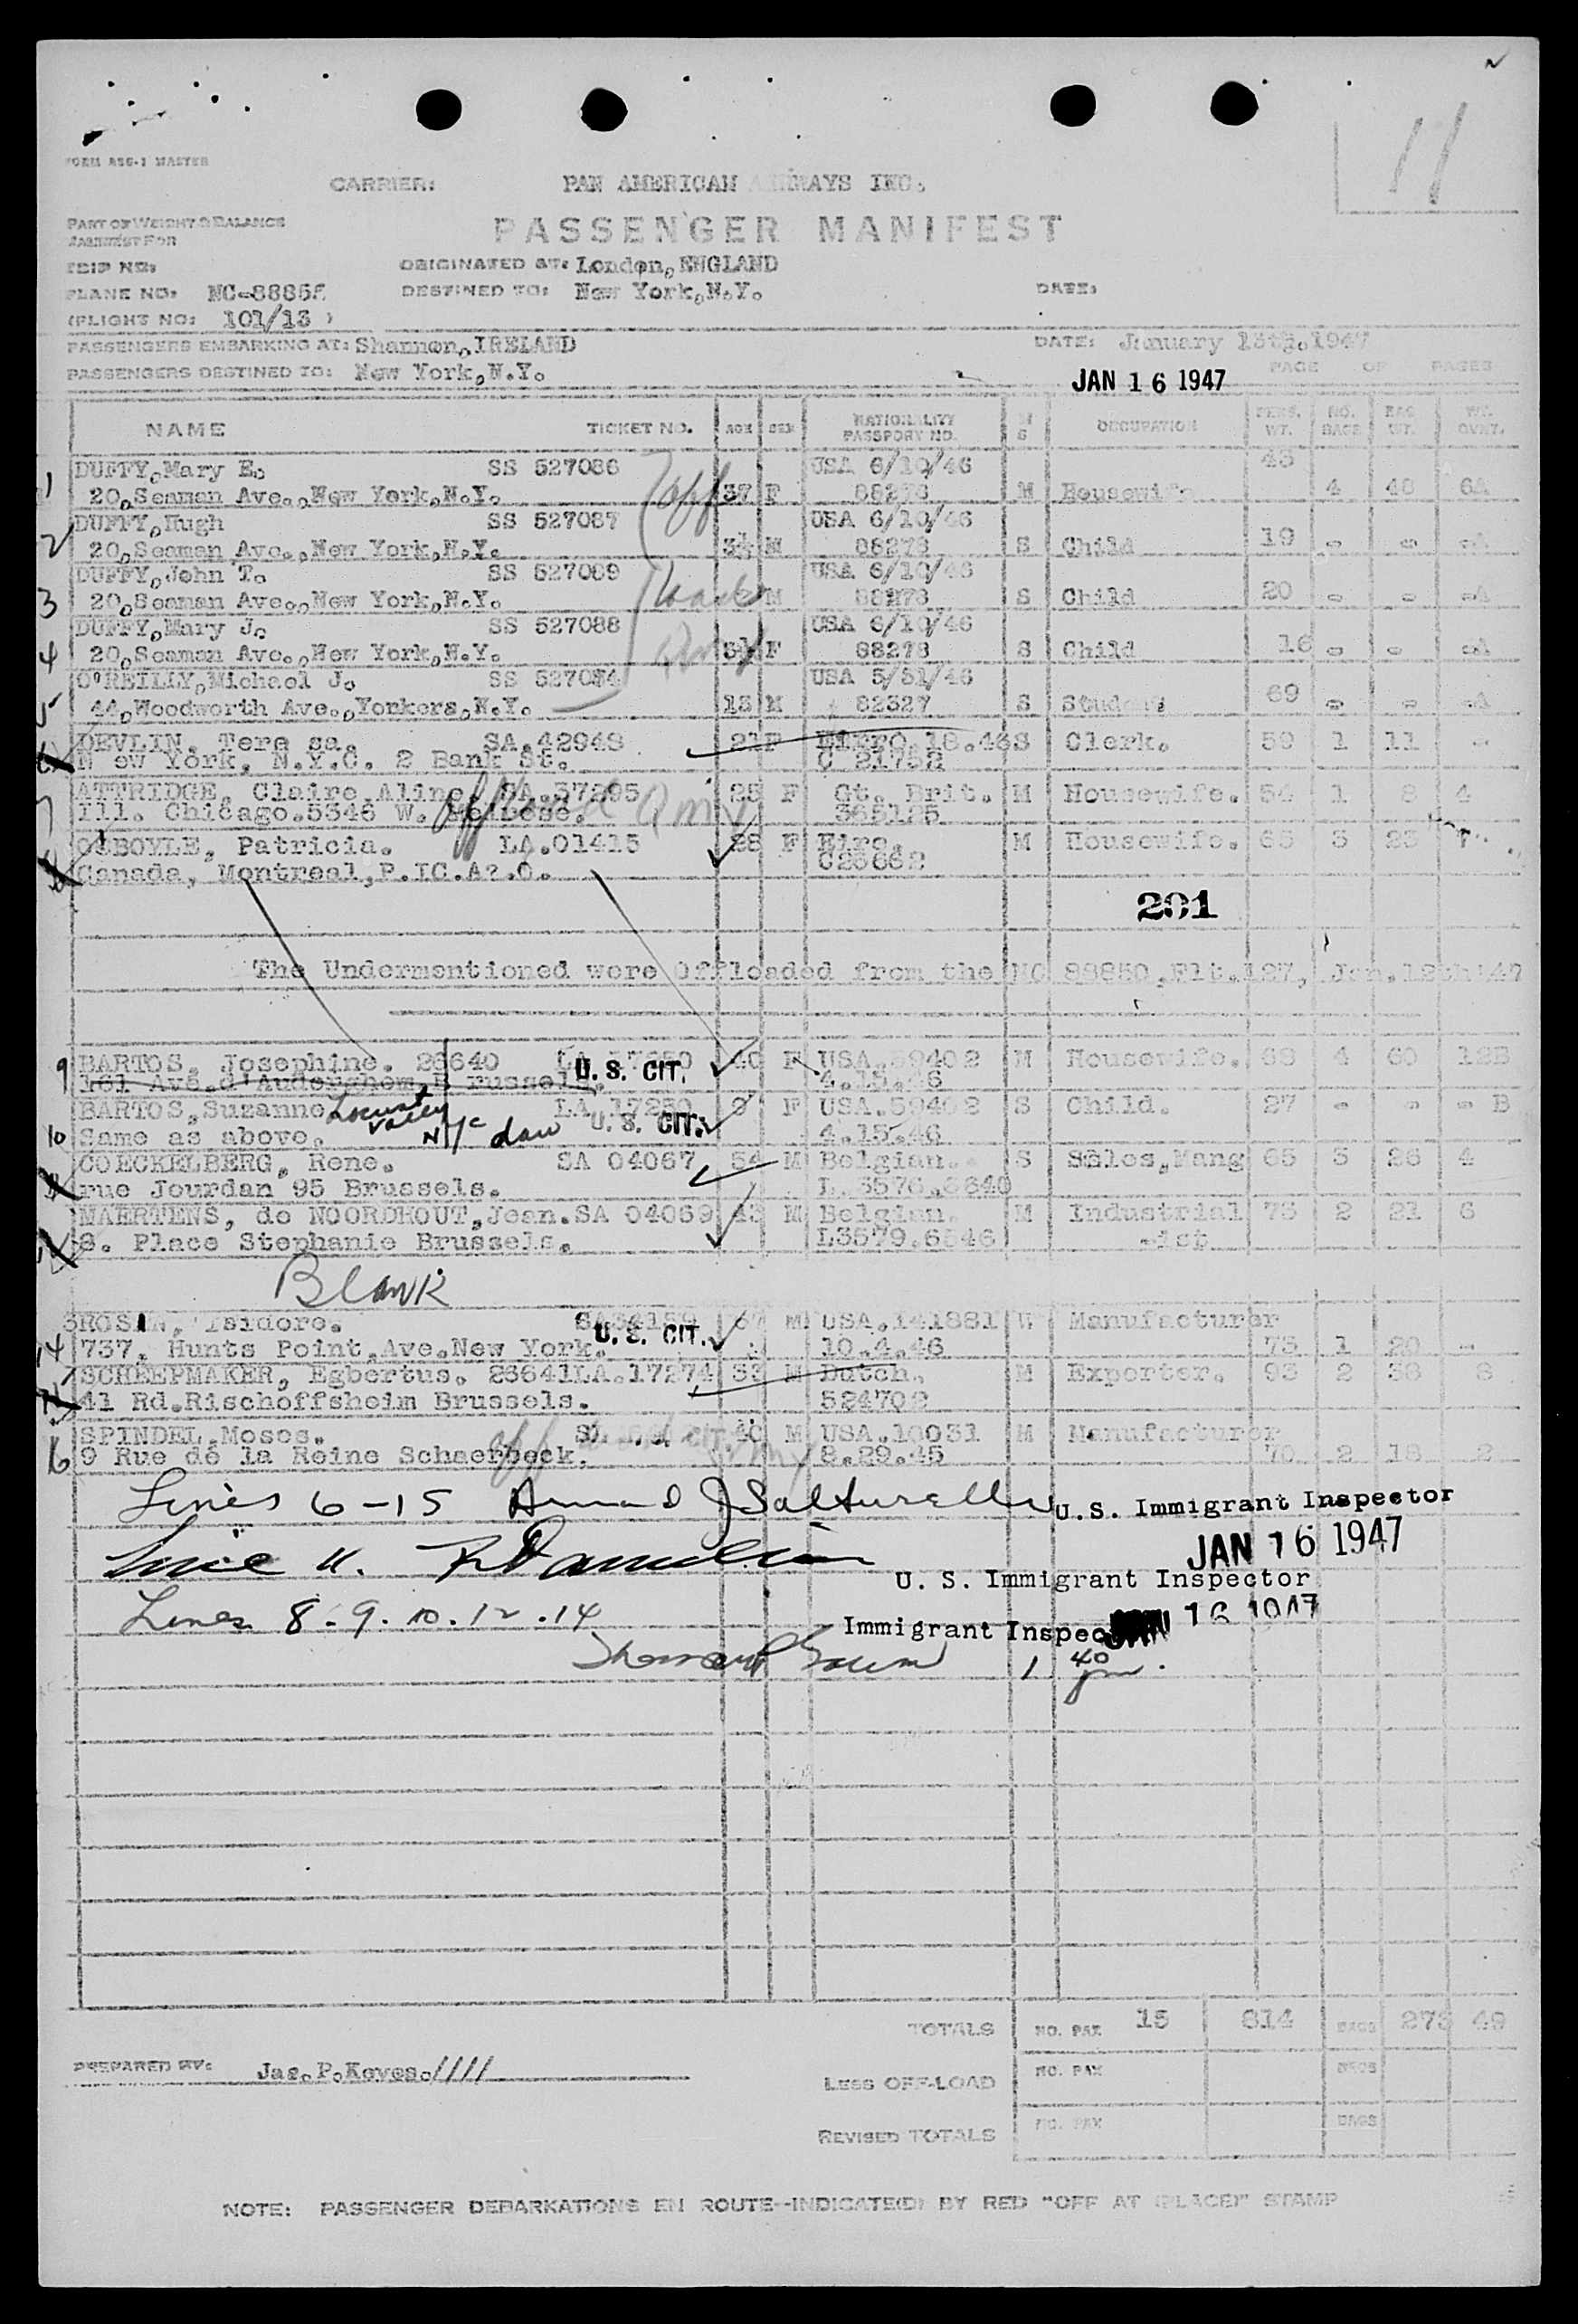 11
FORM ASG-1 MASTER
CARRIER: PAN AMERICAN AIRWAYS INC.
PART OF WEIGHT & BALANCE
MANIFEST FOR
PASSENGER MANIFEST
TRIP NO: ORIGINATED AT: London, ENGLAND
PLANE NO: NC-8885 DESTINED TO: New York, N.Y. DATE:
(FLIGHT NO: 101/13 )
PASSENGERS EMBARKING AT: Shannon, IRELAND DATE: January 15th, 1947
PASSENGERS DESTINED TO: New York, N.Y. JAN 16 1947 PAGE OF PAGES
NAME TICKET NO. AGE SEX NATIONALITY PASSPORT NO. M S OCCUPATION PERS. WT. NO. BAGS BAG WT. WT. OVWT.
1 DUFFY, Mary E. SS 527086 USA 6/10/46 45
20, Seaman Ave., New York, N.Y. off 37 F 88278 M Housewife 4 48 6A
2 DUFFY, Hugh SS 527087 USA 6/10/46
20, Seaman Ave., New York, N.Y. 3½ M 88278 S Child 19 - - -A
3 DUFFY, John T. SS 527089 USA 6/10/46
20, Seaman Ave., New York, N.Y. M 88278 S Child 20 - - -A
4 DUFFY, Mary J. SS 527088 USA 6/10/46
20, Seaman Ave., New York, N.Y. 3½ F 88278 S Child 16 - - -A
5 O'REILLY, Michael J. SS 527084 USA 5/31/46
44, Woodworth Ave., Yonkers, N.Y. 18 M 82327 S Student 69 - - -A
DEVLIN, Tere sa. SA.42948 21 F S Clerk. 59 1 11 -
N ew York, N.Y.C. 2 Bank St. C 21752
7 ATTRIDGE, Claire Aline. SA.37295 25 F Gt. Brit. M Housewife. 54 1 8 4
Ill. Chicago. 5346 W. 365125
O'BOYLE, Patricia. LA.01415 28 F Eire. M Housewife. 65 3 23
Canada, Montreal, P.IC.A?.O. C26662
201
The Undermentioned were Offloaded from the NC 88850, Flt.127, Jan.12th'47
9 BARTOS, Josephine. 26640 U.S. CIT. 40 F USA.59402 M Housewife. 68 4 60 12B
161 Ave.d'Auderghem, B russels. 4.15.46
BARTOS, Suzanne Locust Valley LA 17250 9 F USA.59402 S Child. 27 - - - B
10 Same as above. U.S. CIT. 4.15.46
COECKELBERG, Rene. SA 04067 54 M Belgian. S Sales, Mang 65 3 26 4
rue Jourdan 95 Brussels. L.3576.6640
MAERTENS, de NOORDHOUT, Jean. SA 04069 43 M Belgian. M Industrial 75 2 21 6
8. Place Stephanie Brussels. L3579.6546 -ist
Blank
ROSIN, Isidore. 67 M USA.141881 W Manufacturer
14 737, Hunts Point, Ave. New York. U.S. CIT. 10.4.46 75 1 20 -
SCHEEPMAKER, Egbertus. 26641 LA.17274 33 M Dutch. M Exporter. 93 2 38 8
41 Rd. Rischoffsheim Brussels. 524702
SPINDEL, Moses. 40 M USA.10031 M Manufacturer
16 9 Rue de la Reine Schaerbeck. 8.29.45 70 2 18 2
Lines 6-15 U.S. Immigrant Inspector
JAN 16 1947
U. S. Immigrant Inspector
Lines 8. 9. 10. 12. 14 JAN 16 1947
Immigrant Inspector
1 40 pm.
TOTALS NO. PAX 15 814 BAGS 273 49
PREPARED BY: Jas. P. Keyes. ////
LESS OFF-LOAD NO. PAX BAGS
REVISED TOTALS NO. PAX BAGS
NOTE: PASSENGER DEBARKATIONS EN ROUTE--INDICATE(D) BY RED "OFF AT (PLACE)" STAMP